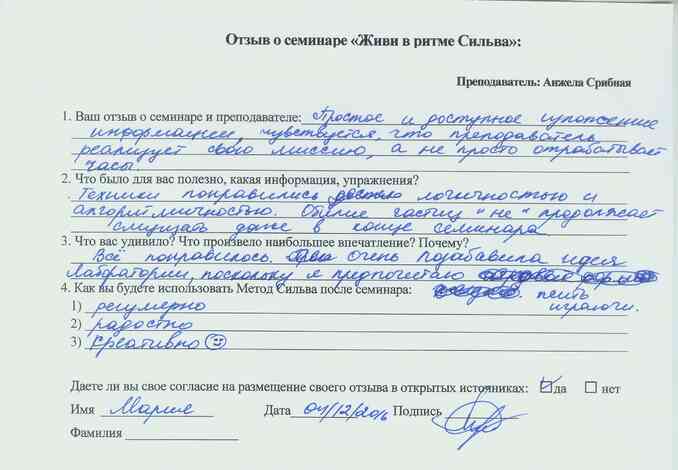 Отзыв о семинаре «Живи в ритме Сильва»:
Преподаватель: Анжела Срибная
1. Ваш отзыв о семинаре и преподавателе: Простое и доступное изложение
информации, чувствуется, что преподаватель
реализует свою миссию, а не просто отрабатывает
часы.
2. Что было для вас полезно, какая информация, упражнения?
Техники понравились логичностью и
алгоритмичностью. Обилие частиц "не" продолжает
смущать даже в конце семинара
3. Что вас удивило? Что произвело наибольшее впечатление? Почему?
Всё понравилось. Очень позабавила идея
лаборатории, поскольку я предпочитаю
4. Как вы будете использовать Метод Сильва после семинара:
1) регулярно
2) радостно
3) креативно
Даете ли вы свое согласие на размещение своего отзыва в открытых источниках: да нет
Имя Мария Дата 04/12/2016 Подпись
Фамилия